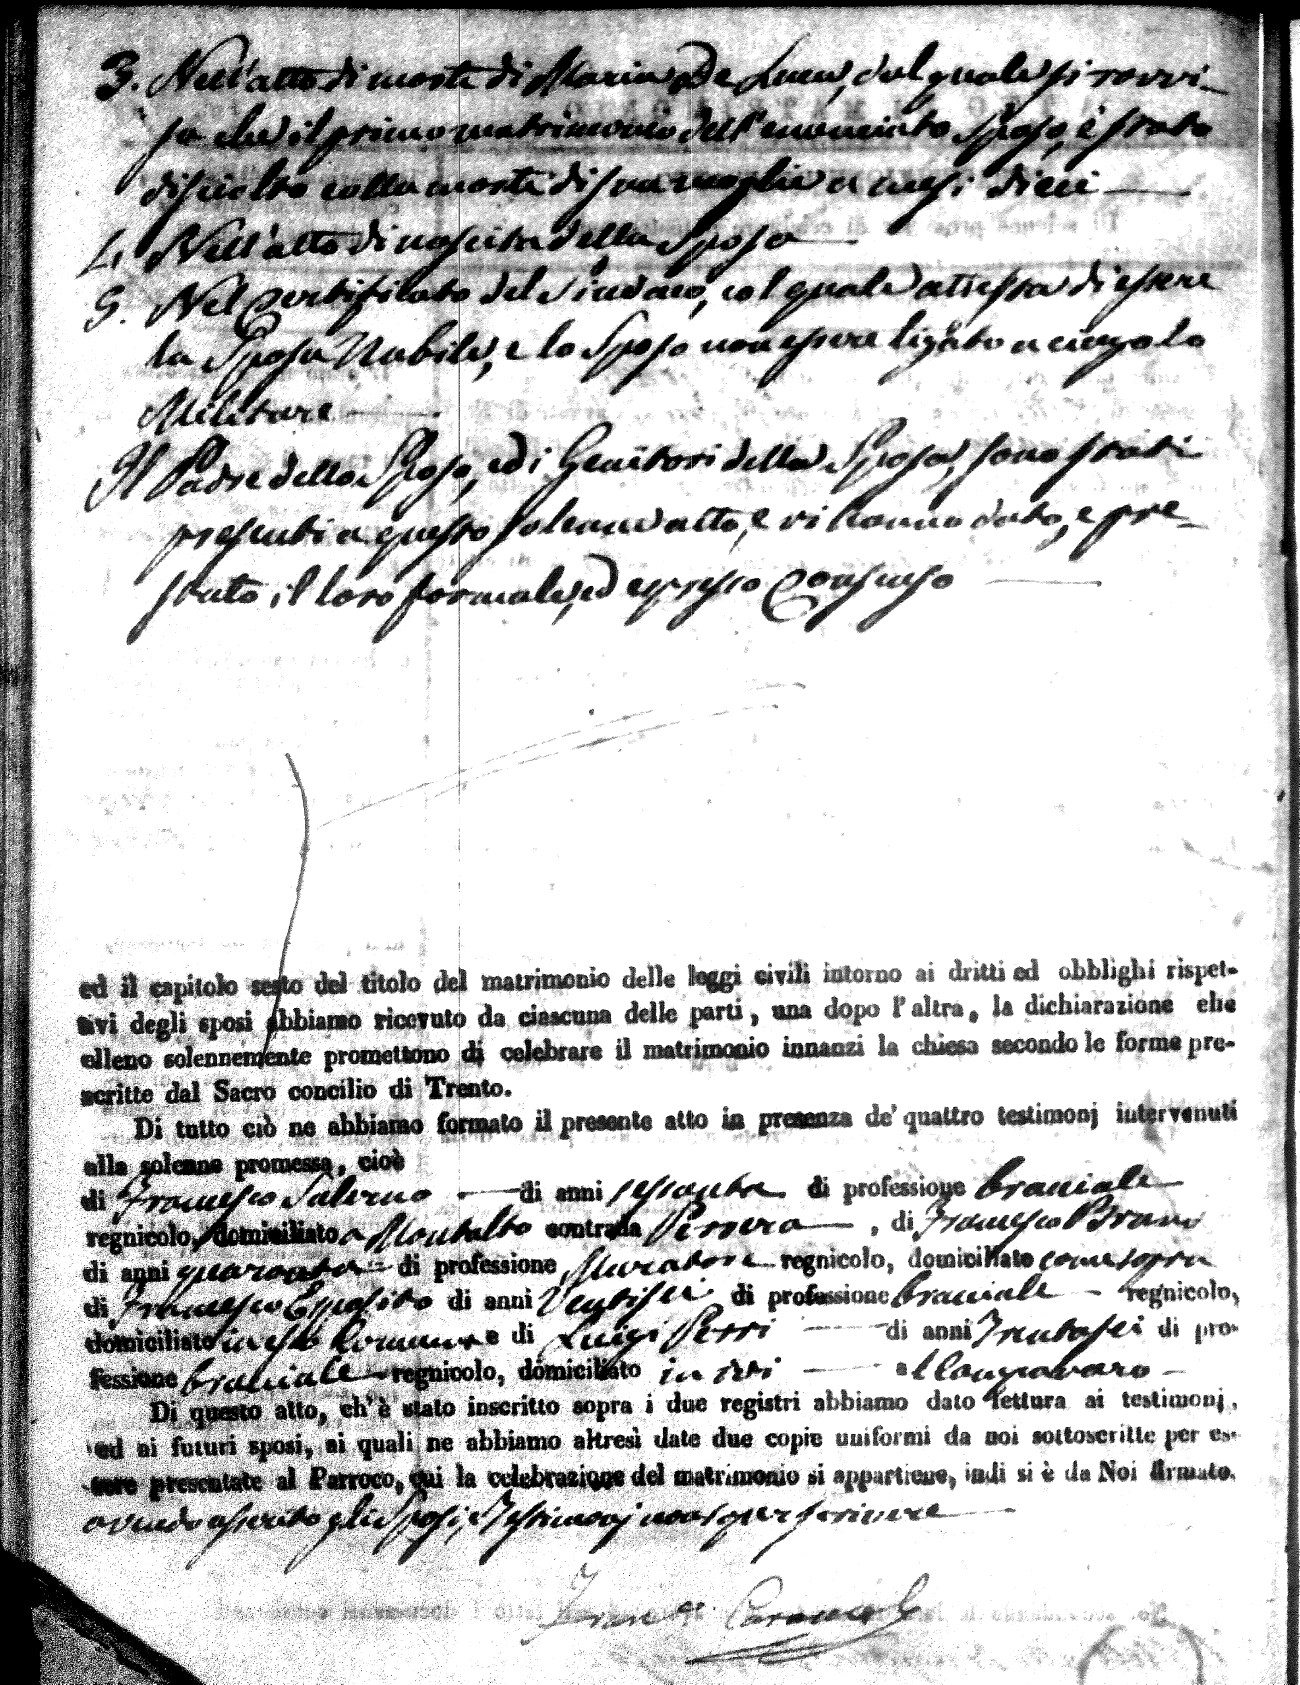 3. Nell'atto di morte di Maria De Luca, dal quale si ravvi-
sa che il primo matrimonio dell'enunciato Sposo, è stato
disciolto colla morte di sua moglie a mesi dieci
4. Nell'atto di nascita della Sposa
5. Nel Certificato del Sindaco, col quale attessta di essere
la Sposa Nubile, e lo Sposo non essere ligato a cingolo
Militare
Il Padre dello Sposo, ed i Genitori della Sposa, sono stati
presenti a questo solenne atto, e vi hanno dato, e pre-
stato il loro formale, ed espresso Consenso
ed il capitolo sesto del titolo del matrimonio delle leggi civili intorno ai dritti ed obblighi rispet-
tivi degli sposi abbiamo ricevuto da ciascuna delle parti, una dopo l'altra, la dichiarazione che
elleno solennemente promettono di celebrare il matrimonio innanzi la chiesa secondo le forme pre-
scritte dal Sacro concilio di Trento.
Di tutto ciò ne abbiamo formato il presente atto in presenza de' quattro testimonj intervenuti
alla solenne promessa, cioè
di Francesco Salerno di anni sessanta di professione braciale
regnicolo, domiciliato a Montalto contrada , di Francesco Bruno
di anni quaranta di professione Muratore regnicolo, domiciliato come sopra
di Francesco Esposito di anni Ventisei di professione braciale regnicolo,
domiciliato in esso Comune e di Luigi Perri di anni Trentasei di pro-
fessione braciale regnicolo, domiciliato in
Di questo atto, ch'è stato inscritto sopra i due registri abbiamo dato lettura ai testimonj,
ed ai futuri sposi, ai quali ne abbiamo altresì date due copie uniformi da noi sottoscritte per es-
sere presentate al Parroco, cui la celebrazione del matrimonio si appartiene, indi si è da Noi firmato.
avendo asserito gli Sposi, e Testimonj non saper scrivere